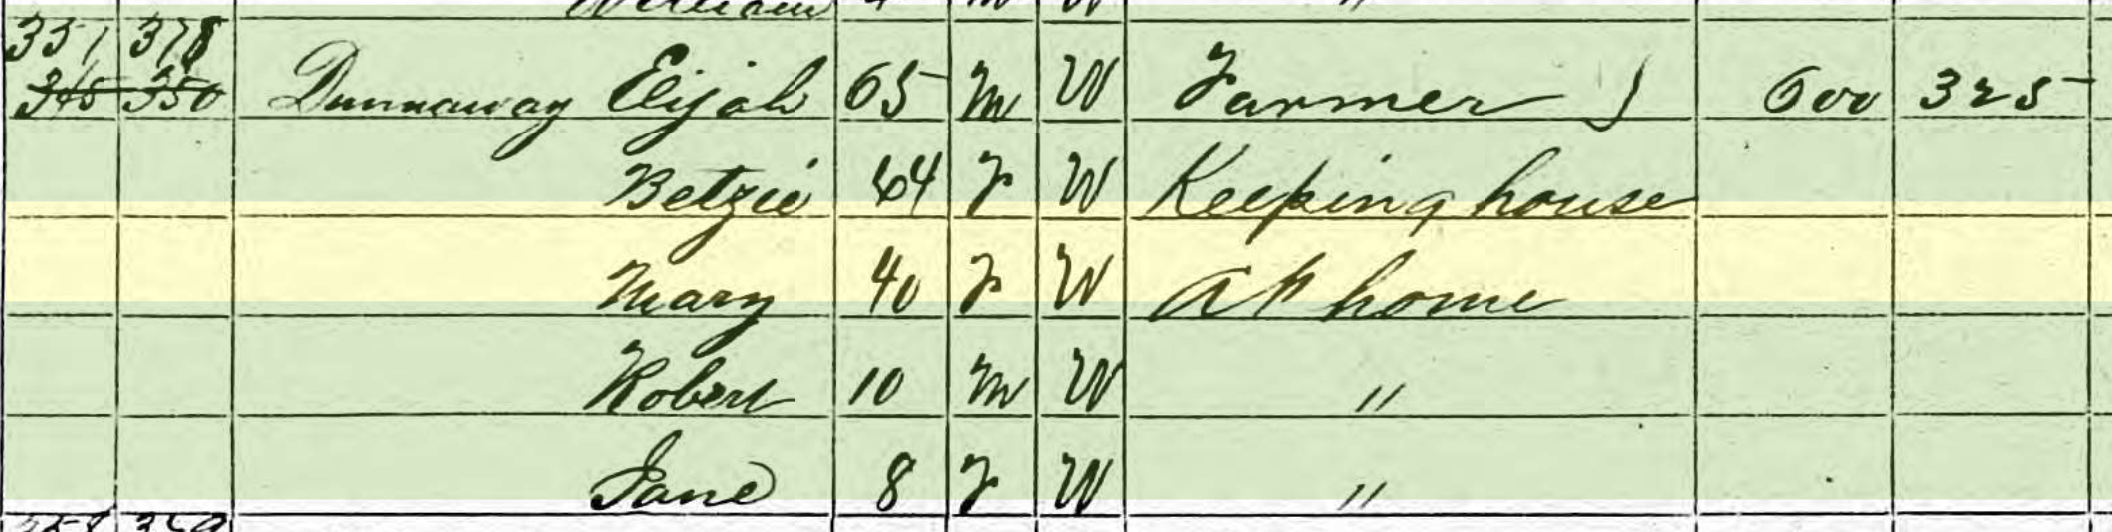 William 4 m W "
351 378
345 350 Dunnaway Elijah 65 m W Farmer 600 325
Betzie 64 F W Keeping house
Mary 40 F W At home
Robert 10 m W "
Jane 8 F W "